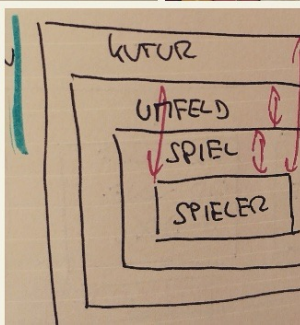 KUTUR
UMFELD
SPIEL
SPIELER